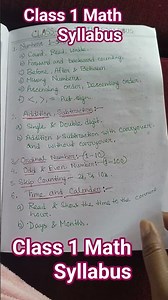 Class 1 Math
Syllabus
a) Count, Read, Write.
b) Forward and backward counting.
c) Before, After & Between.
d) Missing Numbers.
e) Ascending order, Descending Order.
f) <, >, = Put sign.
Addition, Subtraction:-
a) Single & Double digit.
b) Addition & Subtraction with carryover
and without carryover.
Ordinal Numbers:- (1-10)
Odd & Even Numbers (1-100)
Skip Counting:- 2s,
Time and Calender:-
a) Read & Show the time to the
hour.
b) Days & Months.
Class 1 Math
Syllabus